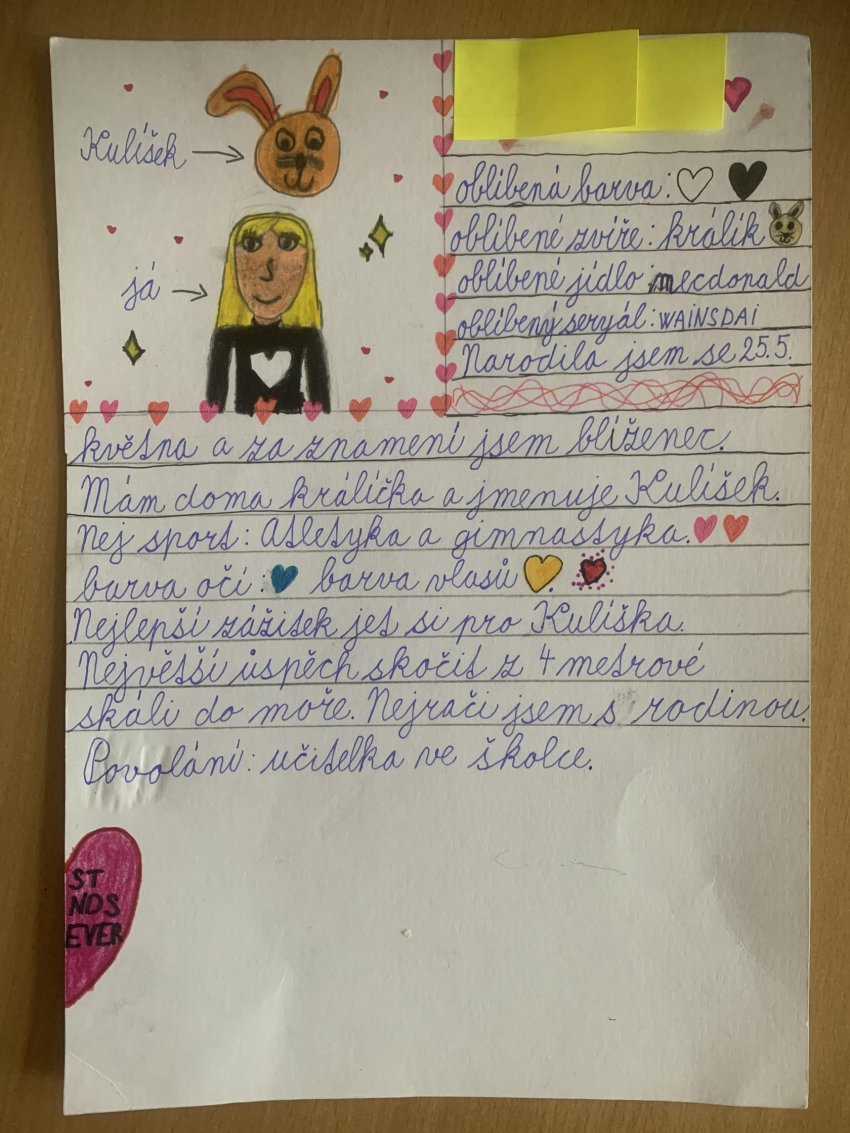 Kulíšek
já
oblíbená barva:
oblíbené zvíře: králík
oblíbené jídlo mecdonald
oblíbený seryál: WAiNSDAi
Narodila jsem se 25.5.
května a za znamení jsem blíženec.
Mám doma králíčka a jmenuje Kulíšek.
Nej sport: Atletyka a gimnastyka.
barva očí: barva vlasů
Nejlepší zážitek jet si pro Kulíška.
Největší úspěch skočit z 4 metrové
skáli do moře. Nejrači jsem s rodinou.
Povolání: učitelka ve školce.
ST
NDS
EVER